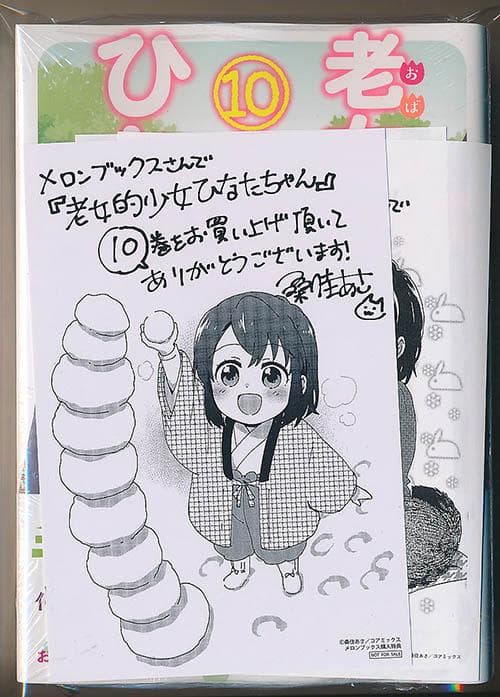 ひ
⑩
老女
おば
メロンブックスさんで
『老女的少女ひなたちゃん』
⑩巻をお買い上げ頂いて
ありがとうございます!
桑佳あさ
で
©桑佳あさ/コアミックス
メロンブックス購入特典
NOT FOR SALE
桑佳あさ/コアミックス
お